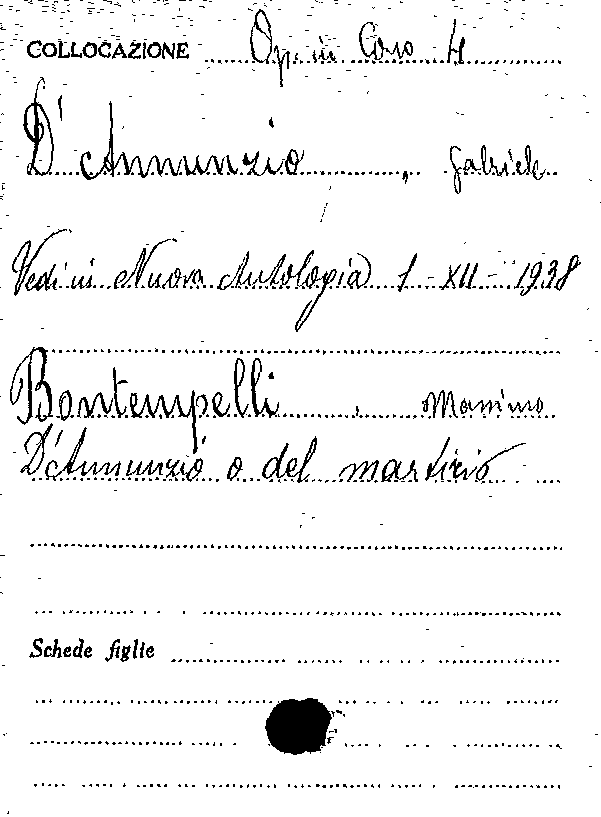 COLLOCAZIONE Op. in Coro 4
D'Annunzio , Gabriele
Vedi in Nuova Antologia 1 - XII - 1938
Bontempelli . Massimo
D'Annunzio o del martirio
Schede figlie